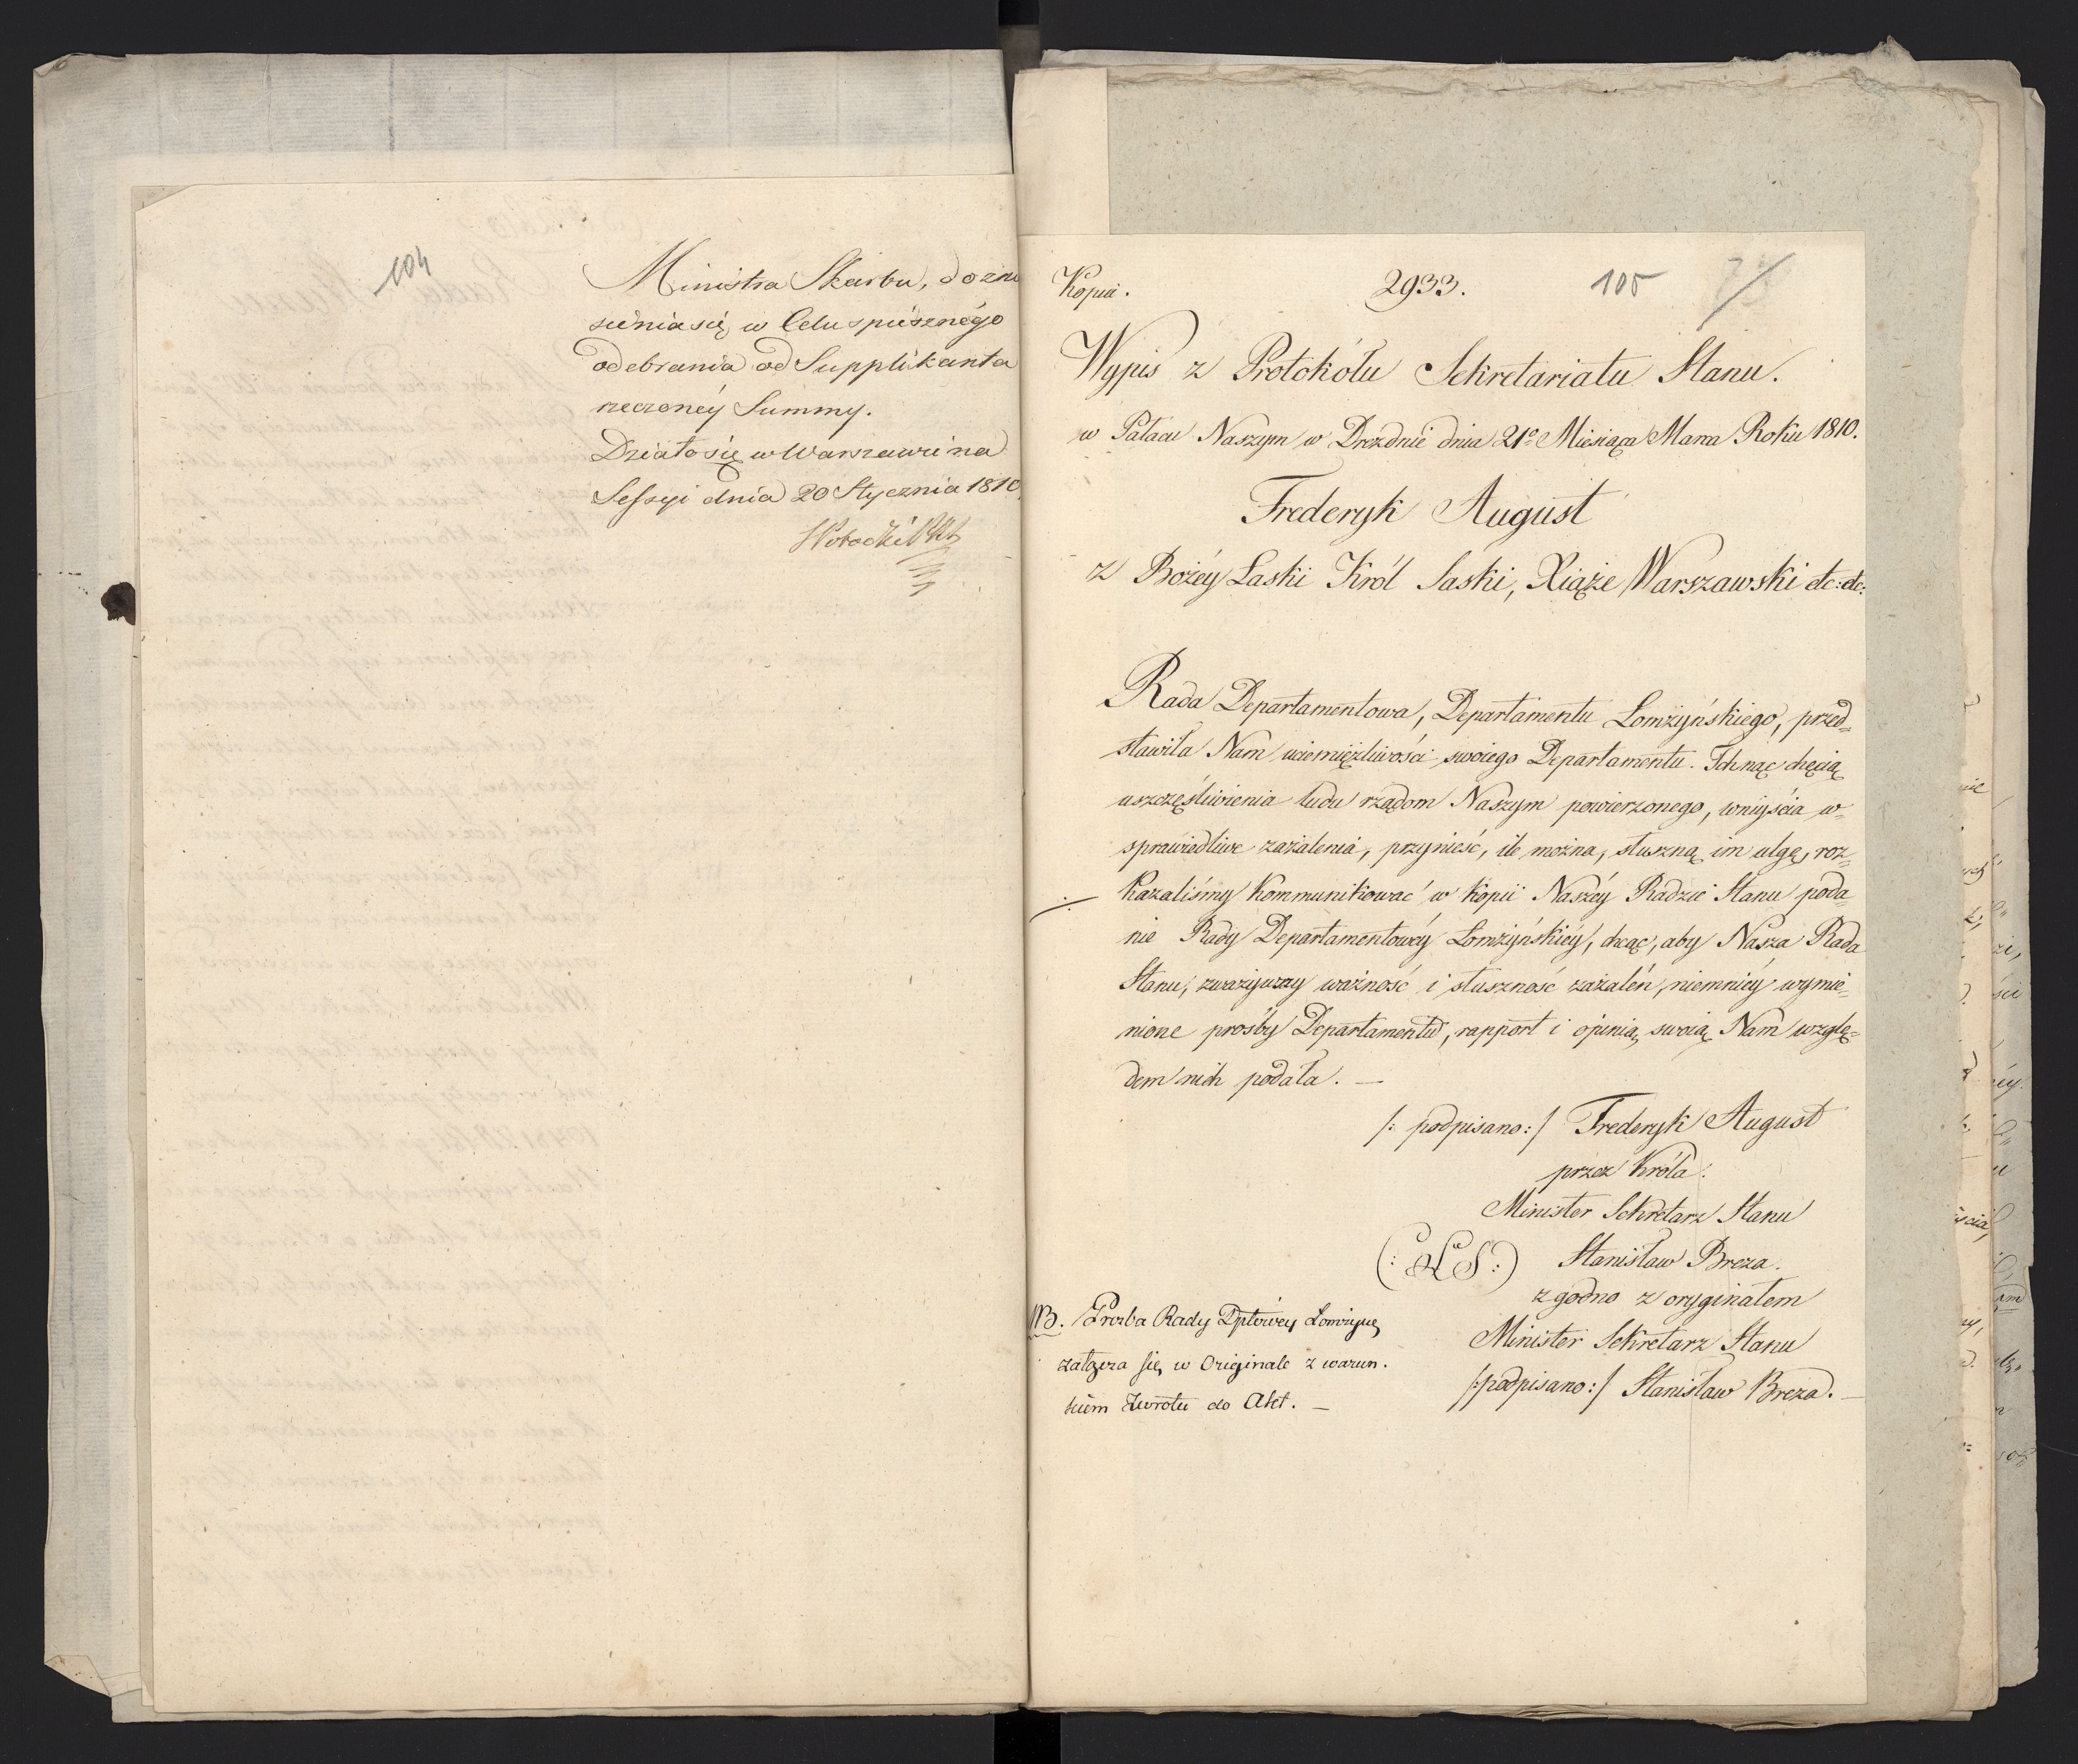 104
Ministra Skarbu, do znie
sienia się w Celu spiesznégo
odebrania od Supplikanta
rzeczonéy Summy.
Działo się w Warszawie na
Sessyi dnia 20 Stycznia 1810.
Kopia.
2933.
105
Wypis z Protokółu Sekretariatu Stanu.
w Pałacu Naszym w Dreźnie dnia 21º Miesiąca Marca Roku 1810.
Frederyk August
z Bożéy Łaski Król Saski, Xiąże Warszawski etc: etc:
Rada Departamentowa, Departamentu Łomżyńskiego, przed=
stawiła Nam uciemiężliwości swoiego Departamentu. Tchnąc chęcią
uszczęśliwienia ludu rządom Naszym powierzonego, wniyścia w=
sprawiedliwe zażalenia, przynieść, ile można, słuszną im ulgę, roz=
kazaliśmy kommunikować w kopii Naszéy Radzie Stanu poda=
nie Rady Departamentowéy Łomżyńskiéy, chcąc, aby Nasza Rada
Stanu, zważywszy ważność i słuszność zażaleń, niemniéy wymie=
nione prośby Departamentu, rapport i opinią swoią Nam wzglę=
dem nich podała. —
/: podpisano :/ Frederyk August
przez Króla.
Minister Sekretarz Stanu
(: L S :) Stanisław Breza.
zgodno z oryginałem
Minister Sekretarz Stanu
/: podpisano :/ Stanisław Breza. —
NB. Prozba Rady Dptowéy Łomżyń
załącza się w Originale z warun.
kiem Zwrotu do Akt. —